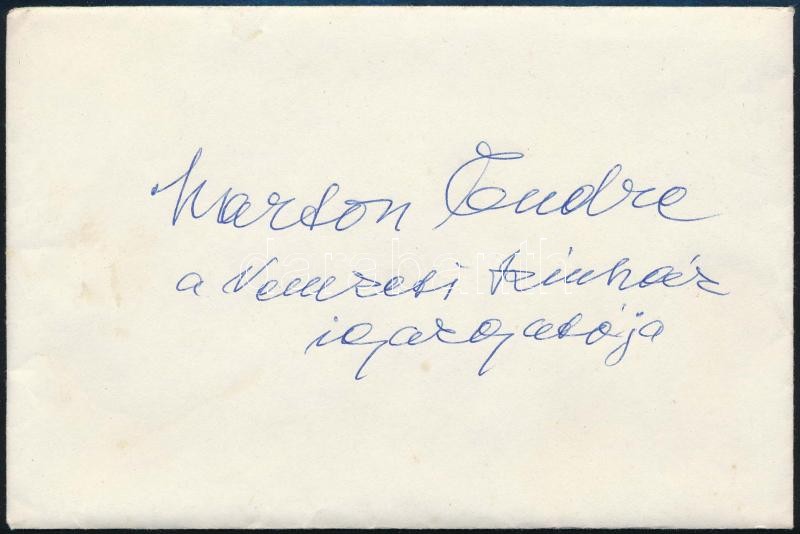 Marton Endre
a Nemzeti Színház
igazgatója